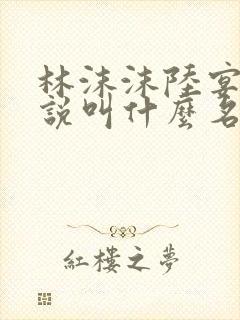 林沫沫陸宴
說叫什麼名
紅樓之夢